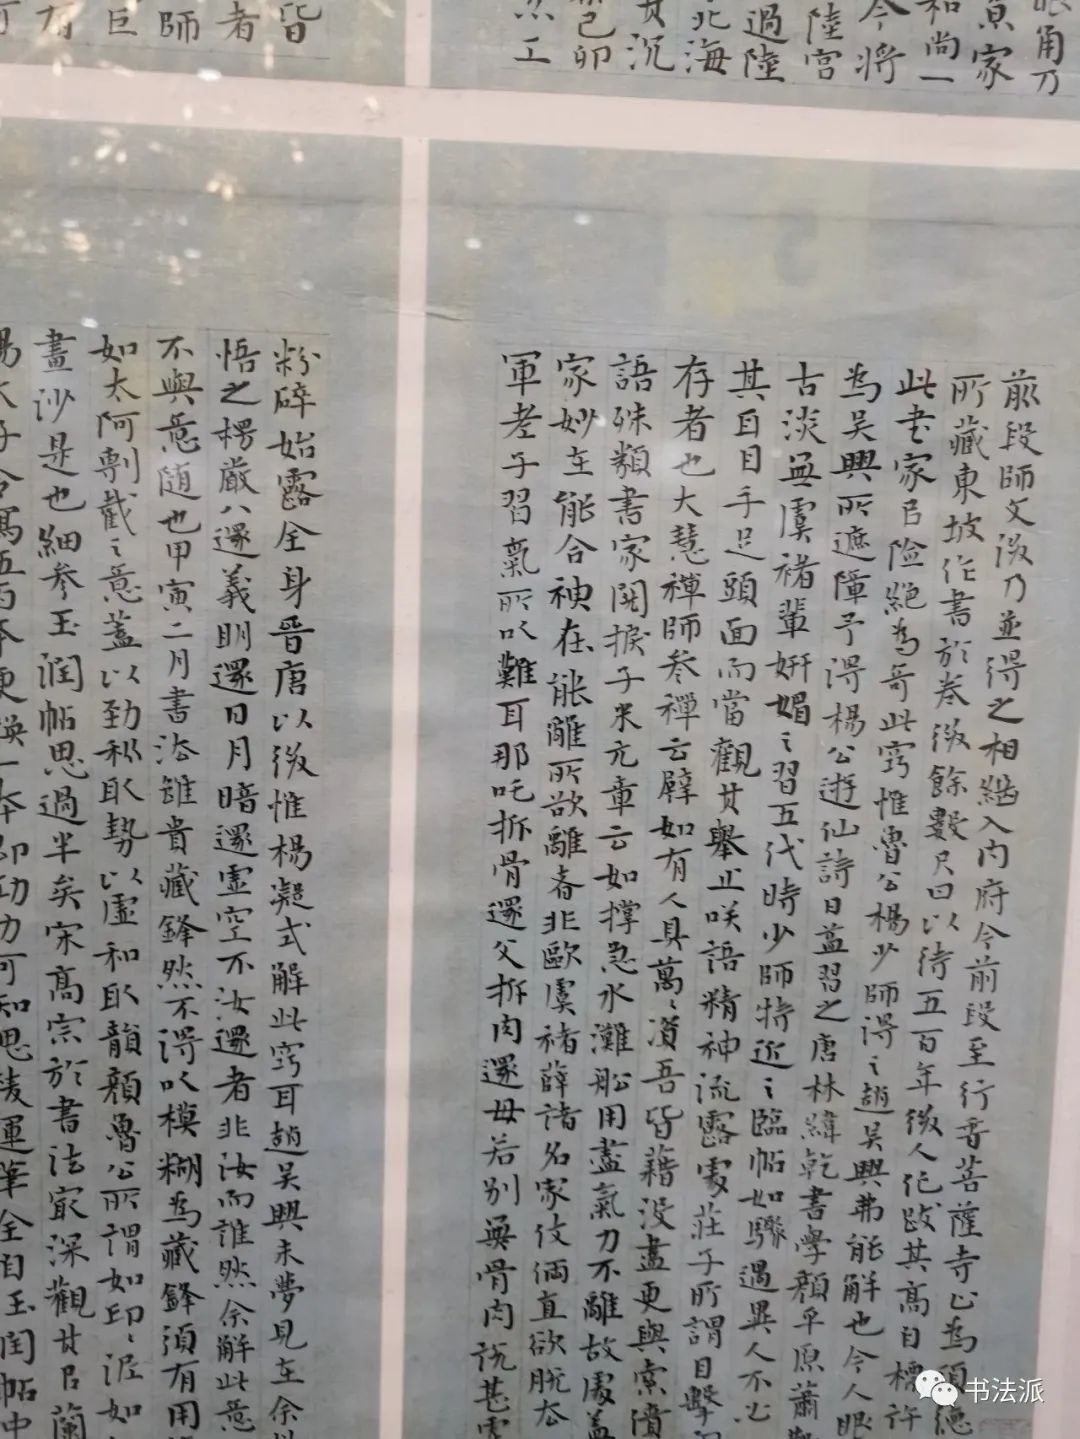 眼角乃
魚家
和尚一
今將
陸宮
過陸
北海
其沉
己卯
工
皆
者
師
巨
前段師文後乃並得之相繼入内府今前段至行普菩薩寺心為頭德
所藏東坡作書於卷後餘數尺曰以待五百年後人作跋其高自標許
此書家以險絕為奇此竅惟魯公楊少師得之趙吳興弗能解也今人眼
為吳興所遮障予得楊公遊仙詩日益習之唐林緯乾書學顏平原蕭
古淡無虞褚輩妍媚之習五代時少師特近之臨帖如驟遇異人不必
其耳目手足頭面而當觀其舉止咲語精神流露處莊子所謂目擊
存者也大慧禪師參禪云譬如有人具萬萬資吾皆藉没盡更與索債
語殊類書家關捩子米元章云如撐急水灘船用盡氣力不離故處蓋
家妙在能合神在能離所欲離者非歐虞褚薛諸名家伎倆直欲脱去
軍老子習氣所以難耳那吒拆骨還父拆肉還母若別無骨肉說甚虛
粉碎始露全身晉唐以後惟楊凝式解此竅耳趙吳興未夢見在余
悟之楞嚴八還義明還日月暗還虛空不汝還者非汝而誰然余解此意
不與意隨也甲寅二月書法雖貴藏鋒然不得以模糊為藏鋒須有用
如太阿剸截之意蓋以勁利取勢以虛和取韻顏魯公所謂如印印泥如
畫沙是也細參玉潤帖思過半矣宋高宗於書法最深觀其以蘭